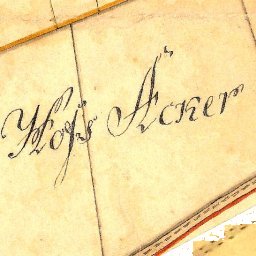 Hofs Äcker